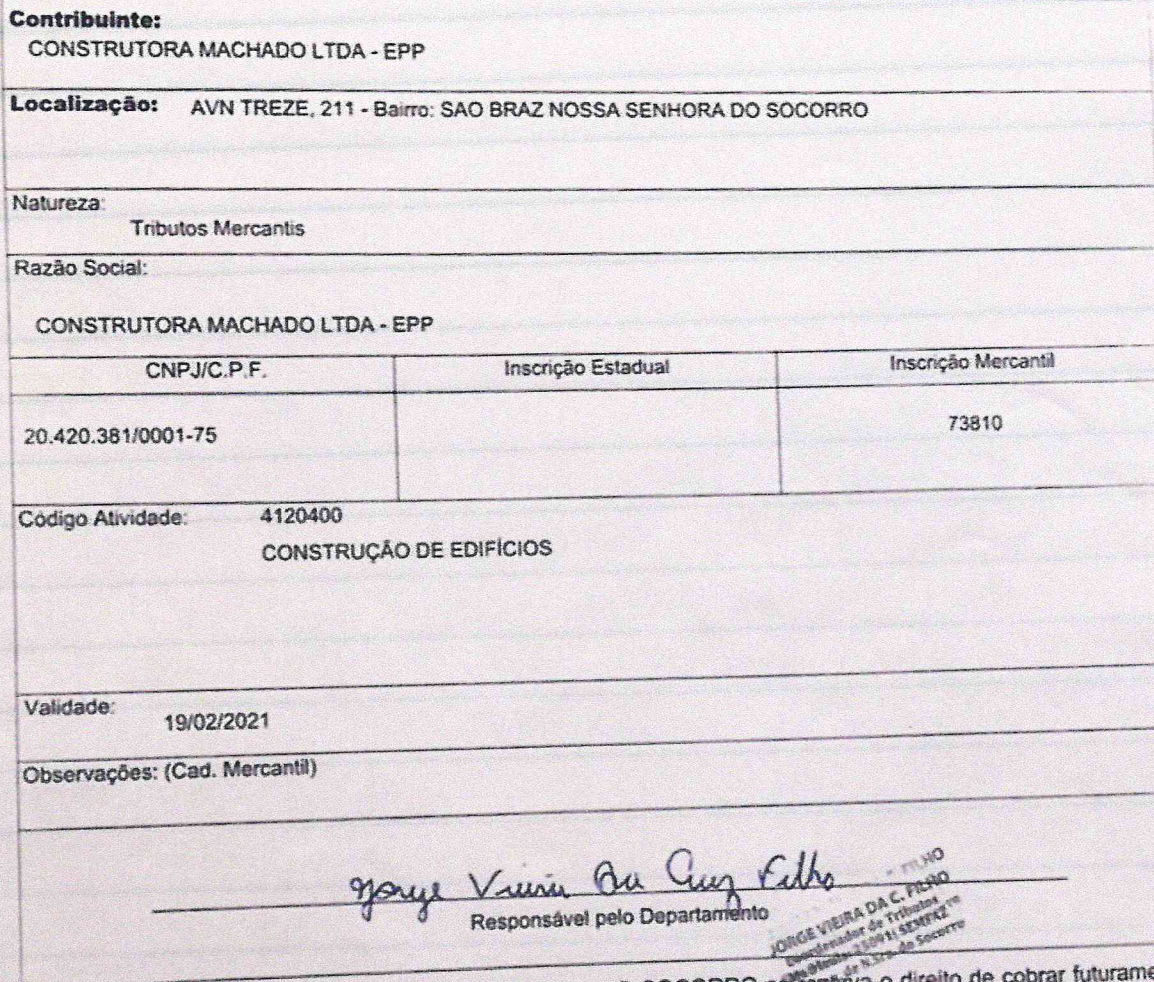 Contribuinte:
CONSTRUTORA MACHADO LTDA - EPP
Localização: AVN TREZE, 211 - Bairro: SAO BRAZ NOSSA SENHORA DO SOCORRO
Natureza:
Tributos Mercantis
Razão Social:
CONSTRUTORA MACHADO LTDA - EPP
CNPJ/C.P.F. Inscrição Estadual Inscrição Mercantil
20.420.381/0001-75 73810
Código Atividade: 4120400
CONSTRUÇÃO DE EDIFÍCIOS
Validade:
19/02/2021
Observações: (Cad. Mercantil)
Jorge Vieira Da Cruz Filho
Responsável pelo Departamento
FILHO
JORGE VIEIRA DA C. FILHO
Coordenador de Tributos
SEMFAZ
de N.Sra. do Socorro
SOCORRO o direito de cobrar futurame